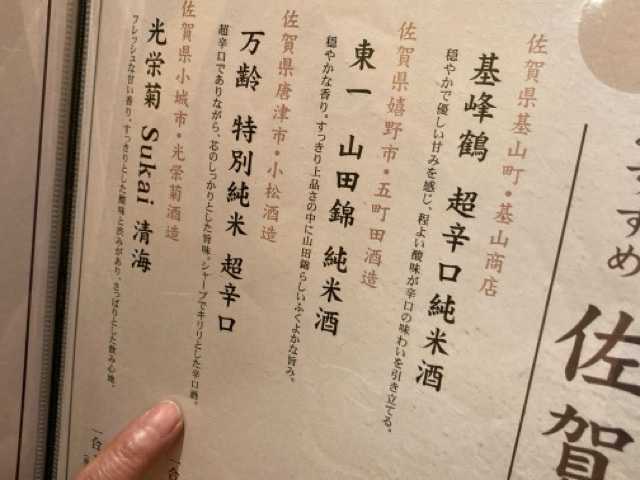 すすめ 佐賀
佐賀県基山町・基山商店
基峰鶴 超辛口純米酒
穏やかで優しい甘みを感じ、程よい酸味が辛口の味わいを引き立てる。
佐賀県嬉野市・五町田酒造
東一 山田錦 純米酒
穏やかな香り。すっきり上品さの中に山田錦らしいふくよかな旨み。
佐賀県唐津市・小松酒造
万齢 特別純米 超辛口
超辛口でありながら、芯のしっかりとした旨味。シャープでキリリとした辛口酒。
佐賀県小城市・光栄菊酒造
光栄菊 Sukai 清海
フレッシュな甘い香り。すっきりとした酸味と渋みがあり、さっぱりとした飲み心地。
一合
一合